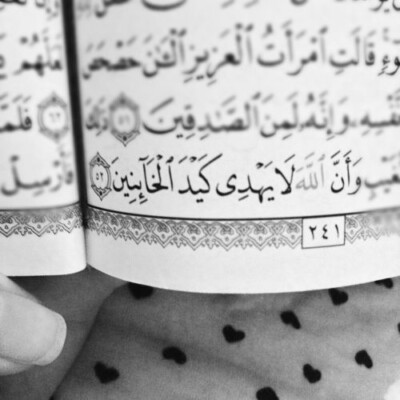 قَالَتِ ٱمْرَأَتُ ٱلْعَزِيزِ ٱلْـَٰٔنَ حَصْحَصَ
نَّفْسِهِۦ وَإِنَّهُۥ لَمِنَ ٱلصَّٰدِقِينَ ٥١ ذَٰلِكَ
وَأَنَّ ٱللَّهَ لَا يَهْدِى كَيْدَ ٱلْخَآئِنِينَ ٥٢
٢٤١
٦٢ فَلَمَّا
فَأَرْسِلْ